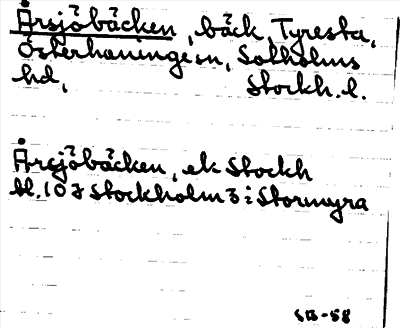 Årsjöbäcken, bäck, Tyresta,
Österhaninge sn, Sotholms
hd, Stockh. l.
Årsjöbäcken, ek Stockh
bl. 107 Stockholm 3 i Stormyra
SB-58